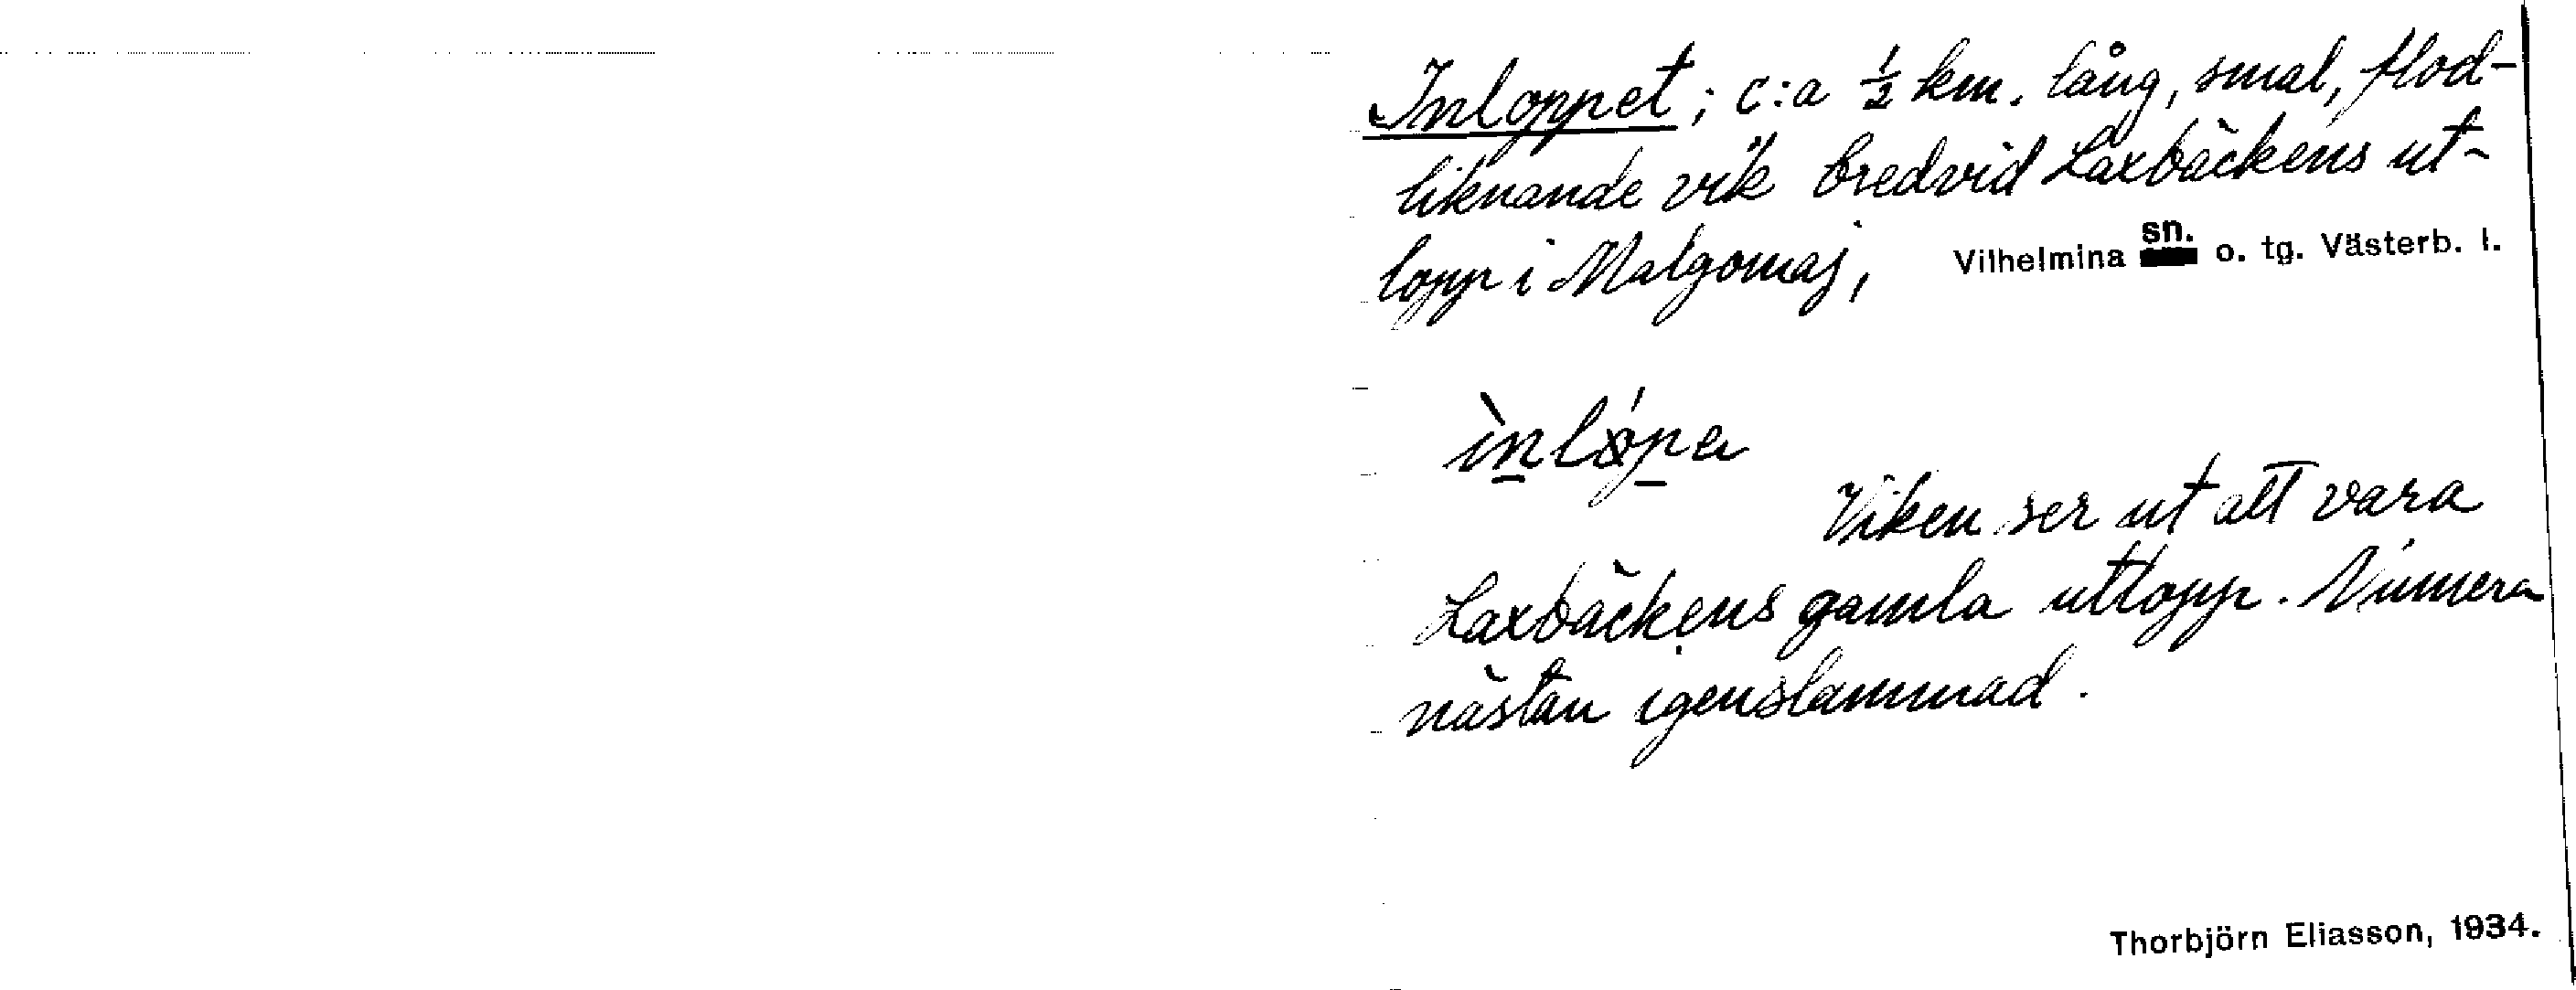 Inloppet; c:a ½ km. lång, smal, flod-
liknande vik bredvid Laxbäckens ut-
lopp i Malgomaj, Vilhelmina sn. o. tg. Västerb. l.
Viken ser ut att vara
Laxbäckens gamla utlopp. Numera
nästan igenslammad.
Thorbjörn Eliasson, 1934.